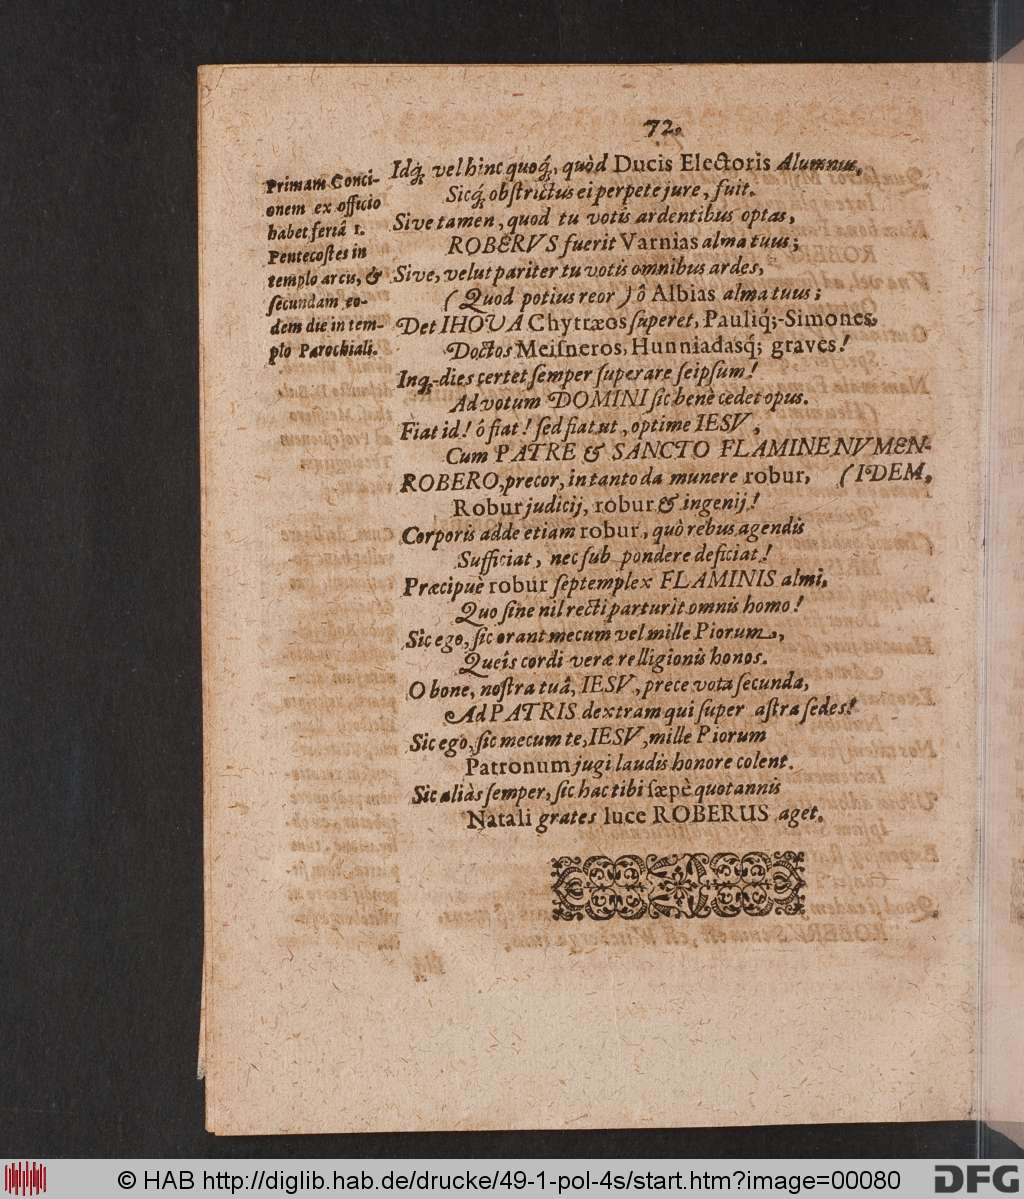 72.
Primam Conci-
onem ex officio
habet feriâ 1.
Pentecostes in
templo arcis, &
secundam eo-
dem die in tem-
plo Parochiali.
Idq́; vel hinc quoq́;, quòd Ducis Electoris Alumnus,
Sicq́; obstrictus ei perpete jure, fuit.
Sive tamen, quod tu votis ardentibus optas,
ROBERVS fuerit Varnias alma tuus;
Sive, velut pariter tu votis omnibus ardes,
(Quod potius reor) ô Albias alma tuus;
Det IHOVA Chytræos superet, Pauliq́;-Simones,
Doctos Meisneros, Hunniadasq́; graves!
Inq́;-dies certet semper superare seipsum!
Ad votum DOMINI sic benè cedet opus.
Fiat id! ô fiat! sed fiat ut, optime IESV,
Cum PATRE & SANCTO FLAMINE NVMEN-
ROBERO, precor, in tanto da munere robur, (IDEM,
Robur judicij, robur & ingenij!
Corporis adde etiam robur, quò rebus agendis
Sufficiat, nec sub pondere deficiat!
Præcipuè robur septemplex FLAMINIS almi,
Quo sine nil recti parturit omnis homo!
Sic ego, sic orant mecum vel mille Piorum,
Queîs cordi veræ relligionis honos.
O bone, nostra tuâ, IESV, prece vota secunda,
Ad PATRIS dextram qui super astra sedes!
Sic ego, sic mecum te, IESV, mille Piorum
Patronum jugi laudis honore colent.
Sic aliàs semper, sic hac tibi sæpè quotannis
Natali grates luce ROBERUS aget.
© HAB http://diglib.hab.de/drucke/49-1-pol-4s/start.htm?image=00080
DFG